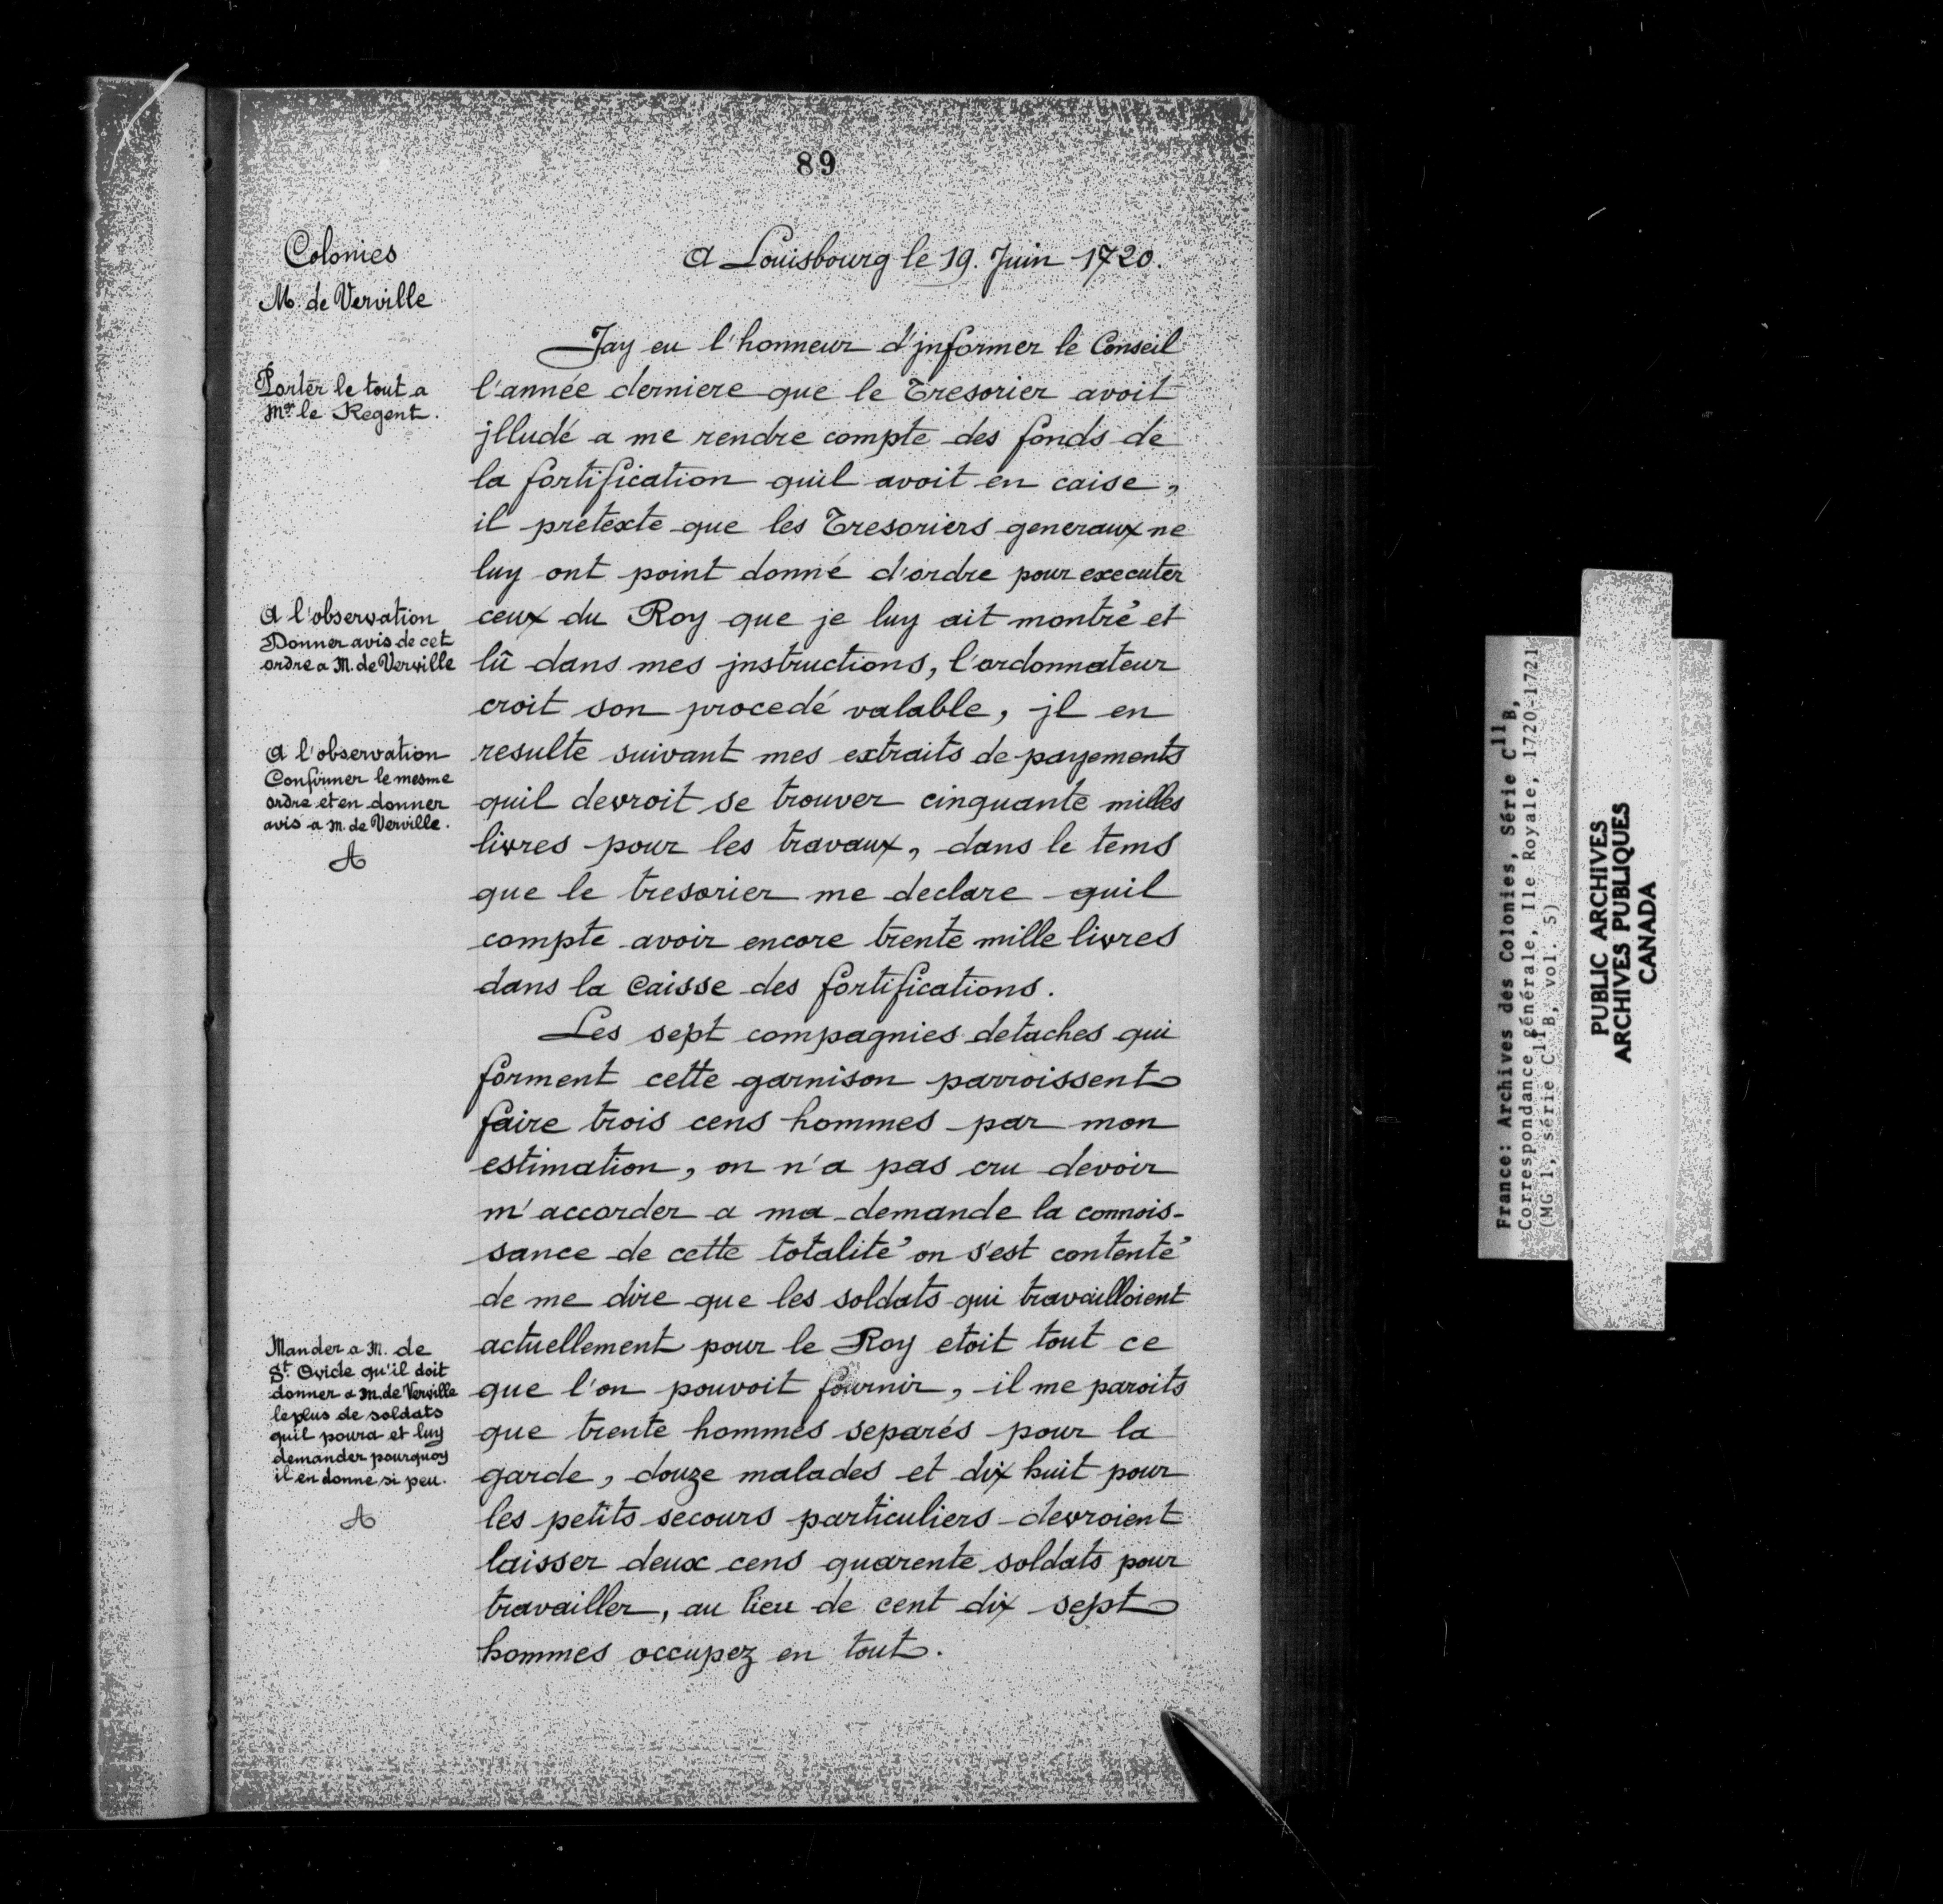 89
Colonies
M. de Verville
Porter le tout a
Mgr le Regent.
A l'observation
Donner avis de cet
ordre a M. de Verville
A l'observation
Confirmer le mesme
ordre et en donner
avis a M. de Verville.
A
Mander a M. de
St. Ovide qu'il doit
donner a M. de Verville
le plus de soldats
quil poura et luy
demander pourquoy
il en donne si peu.
A
A Louisbourg le 19. Juin 1720.
Jay eu l'honneur d'jnformer le Conseil
l'année derniere que le Tresorier avoit
jlludé a me rendre compte des fonds de
la fortification quil avoit en caise,
il pretexte que les Tresoriers generaux ne
luy ont point donné d'ordre pour executer
ceux du Roy que je luy ait montré et
lû dans mes jnstructions, l'ordonnateur
croit son procedé valable, jl en
resulte suivant mes extraits de payements
quil devroit se trouver cinquante milles
livres pour les travaux, dans le tems
que le tresorier me declare quil
compte avoir encore trente mille livres
dans la Caisse des fortifications.
Les sept compagnies detaches qui
forment cette garnison parroissent
faire trois cens hommes par mon
estimation, on n'a pas cru devoir
m'accorder a ma demande la connois-
sance de cette totalité on s'est contenté
de me dire que les soldats qui travailloient
actuellement pour le Roy etoit tout ce
que l'on pouvoit fournir, il me paroits
que trente hommes separés pour la
garde, douze malades et dix huit pour
les petits secours particuliers devroient
laisser deux cens quarente soldats pour
travailler, au lieu de cent dix sept
hommes occupez en tout.
France: Archives des Colonies, Série C11B,
Correspondance générale, Ile Royale, 1720-1721
(MG 1, série C11B, vol. 5)
PUBLIC ARCHIVES
ARCHIVES PUBLIQUES
CANADA